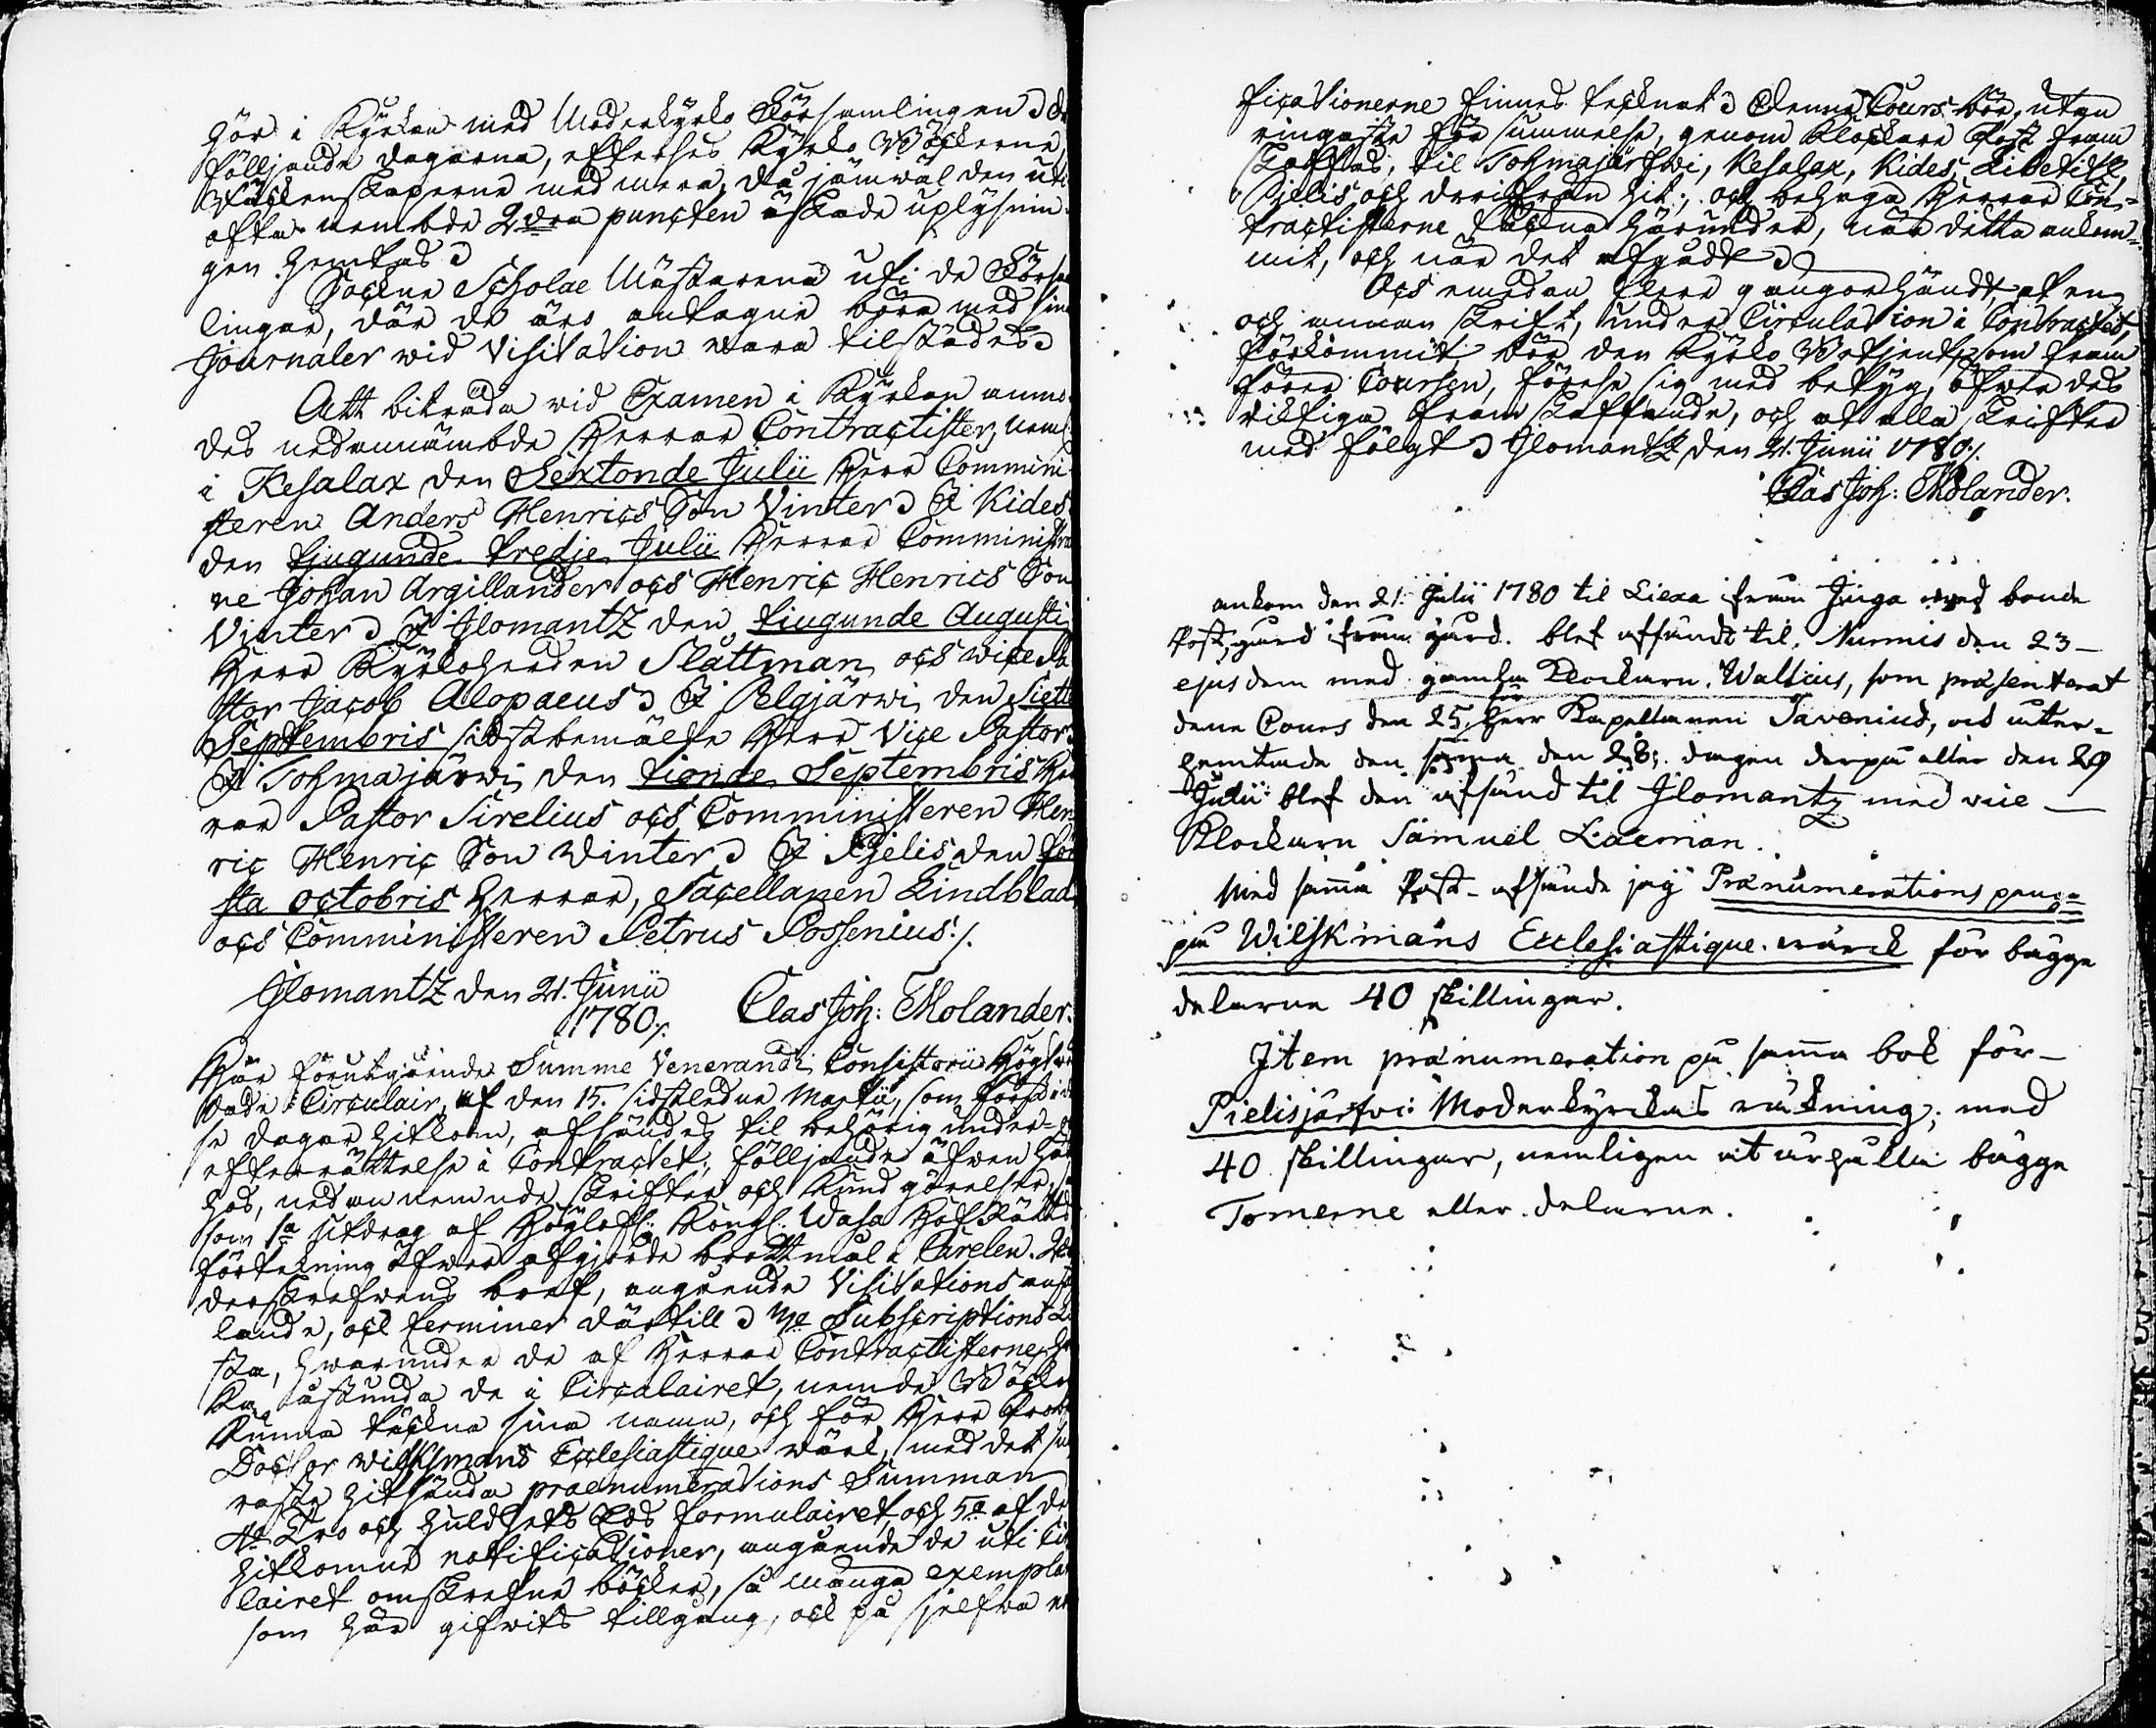 hör i Kyrkan med Moderkyrko Församlingen. De
följande dagarna, efterses Kyrko Böckerna,
Räckenskaperna med mera, då jämwäl den uti
ofta nembde 2dra puncten äskade uplysnin-
gen hemtas.
Sockne Scholae Mästarena uti de Försam
lingar, där de äro antagne böra med sina
Journaler wid Visitation wara tilstädes.
Att biträda wid Examen i Kyrkan anmo-
des nedannämbde Herrar Contractister, neml.
i Kesalax den Sextonde Julii Herr Commini-
steren Anders Henrics Son Vinter. I Kides
den tjugunde tredje Julii Herrar Comministra
ne Johan Argillander och Henric Henrics Son
Vinter. I Jlomantz den tiugunde Augusti
Herr Kyrkoherden Slattman och wice Pa
stor Jacob Alopaeus. I Pelgjärwi den Siette
Septembris sidstbemälte Herr Vice Pastor.
I Tohmajärwi den tionde Septembris Her
rar Pastor Sirelius och Comministeren Hen
ric Henric Son Winter. I Pjelis den för
sta octobris Herrar, Sacellanen Lindblad
och Comministeren Petrus Possenius./.
Jlomantz den 21. Junii
1780./. Clas Joh: Molander.
Här förutgående Summe Venerandi Consistorii Högtwör
dade Circulair, af den 15. sidstledne Martii, som först i des
se dagar hitkom, afsändes til behörig under-
efterrättelse i Contractet, följande äfwen här
hos, nedannemnde skrifter och Kundgörelser,
som 1a Utdrag af Höglofl. Kongl. Wasa Hof Rätts
förtekning öfwer afgjorde brottmål i Carelen. 2do
derskrefwens bref, angående Visitations anstäl
lande, och terminer därtill. 3tie Subscriptions Li
sta, hwarunder de af Herrar Contractisterne, hwil
ka åstunda de i Circulairet, nemde Böcker
kunna teckna sina namn, och för Herr Prob
Doctor Wilskmans Ecclesiastique wärk, med det sna
raste hitsända praenumerations Summan
4to Tro och Huldhets Eds formulairet, och 5to af de
hitkomne notificationer, angående de uti Circu
lairet omskrefne böcker, så många exemplar
som här gifwits tillgång, och på sjelfwa no
ficationerne finnes tecknat. Denne Cours bör, utan
ringaste försummelse, genom Klockare Post fram
skaffas, til Tohmajärfwi, Kesalax, Kides, Libelitz,
Pjelis och derifrån hit; och behaga Herrar Con-
tractisterne teckna härunder, när detta ankom-
mit, och när det afgådt.
Och emedan flere gångor händt, at en
och annan skrift, under Circulation i Contractet,
förkommit bör den Kyrko Betjent, som fram
förer Coursen, förese sig med betyg, öfwer des
riktiga framskaffande, och at alla skrifter
med följgt. Jlomantz den 21. Junii 1780./.
Clas Joh: Molander.
ankom den 21. Julii 1780 til Liexa ifrån Juga med bonde
Post, gård ifrån gård. blef afsändt til Nurmis den 23
ejusdem med gamla Klockarn Wallius, som præsenterat
dene Cours den 25. för Herr Kapellanen Tavenius, och åter-
hemtade den sama den 28; dagen derpå eller den 29
Julii blef den afsänd til Jlomantz med vice
Klockarn Samuel Laxman.
Med sama Post afsände jag Pranumerations peng.
på Wilskmans Ecclesiastique wärck för bägge
delarne 40 skillingar.
Jtem pranumeration på sama bok för
Pielisjärfvi Moderkyrkas räkning, med
40 skillingar, nemligen at ärhålla bägge
Tomerne eller delarne.